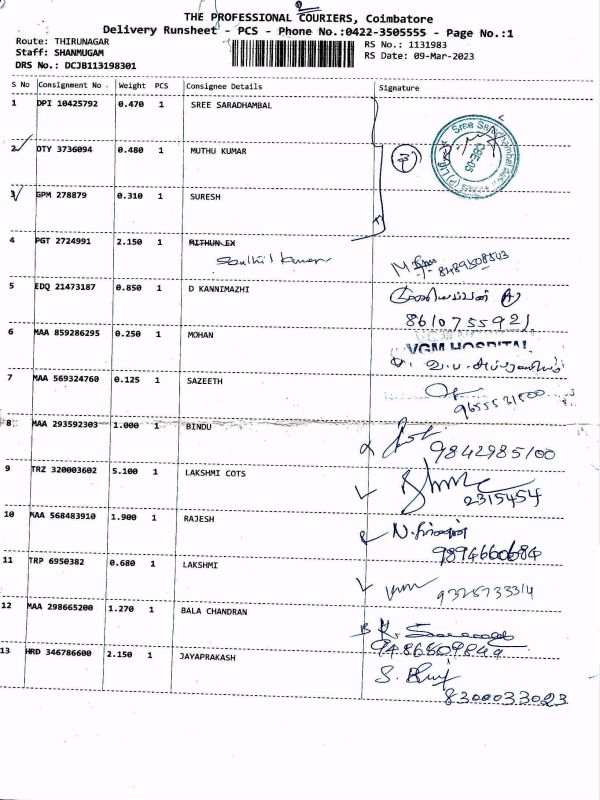 THE PROFESSIONAL COURIERS, Coimbatore
Delivery Runsheet - PCS - Phone No.:0422-3505555 - Page No.:1
Route: THIRUNAGAR
RS No.: 1131983
Staff: SHANMUGAM
RS Date: 09-Mar-2023
DRS No.: DCJB113198301
S No Consignment No. Weight PCS Consignee Details Signature
1 DPI 10425792 0.470 1 SREE SARADHAMBAL
2 OTY 3736094 0.480 1 MUTHU KUMAR
3 GPM 278879 0.310 1 SURESH
4 PGT 2724991 2.150 1 RITHUN EX
Senthil kumar
8489508503
5 EDQ 21473187 0.850 1 D KANNIMAZHI
8610755921
6 MAA 859286295 0.250 1 MOHAN
VGM HOSPITAL
7 MAA 569324760 0.125 1 SAZEETH
8 MAA 293592303 1.000 1 BINDU
9842985100
9 TRZ 320003602 5.100 1 LAKSHMI COTS
2315454
10 MAA 568483910 1.900 1 RAJESH
9894660684
11 TRP 6950382 0.680 1 LAKSHMI
9325733314
12 MAA 298665200 1.270 1 BALA CHANDRAN
13 HRD 346786600 2.150 1 JAYAPRAKASH
8300033023